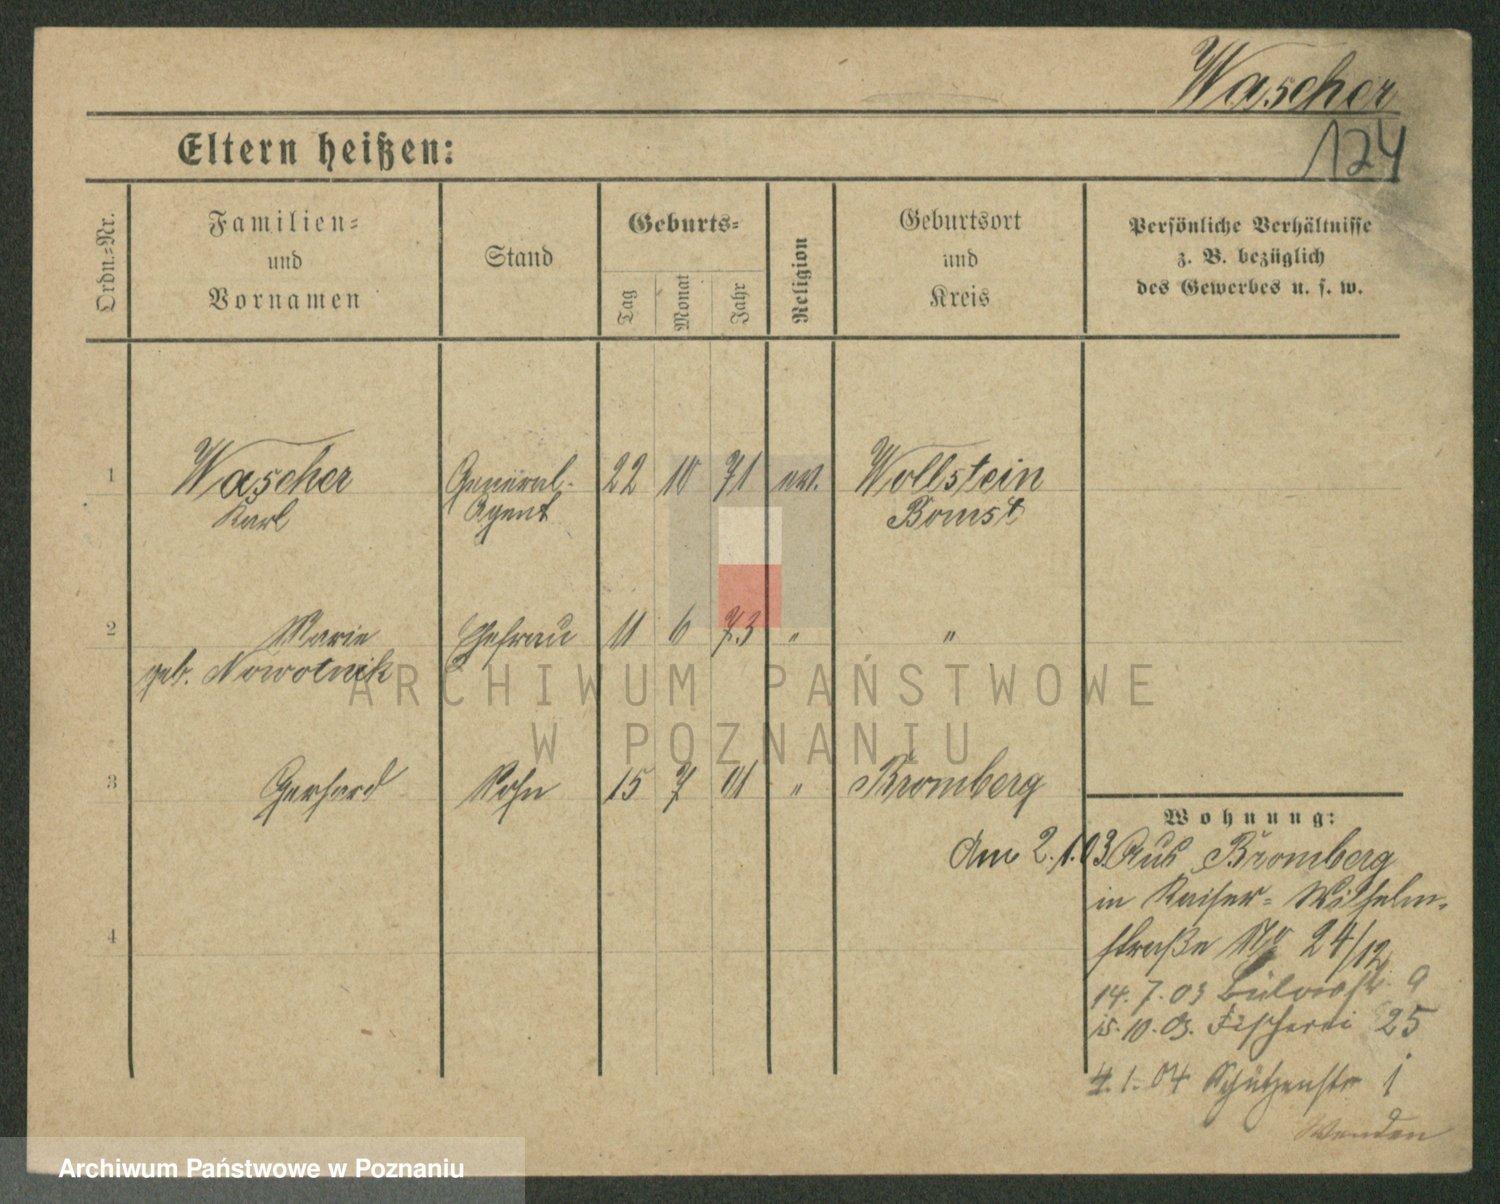 Wascher
124
Eltern heißen:
Ordn.-Nr.
Familien-
und
Vornamen
Stand
Geburts-
Tag
Monat
Jahr
Religion
Geburtsort
und
Kreis
Persönliche Verhältnisse
z. B. bezüglich
des Gewerbes u. s. w.
1 Wascher General- 22 10 71 ev. Wollstein
Karl Agent Bomst
2 Marie Ehefrau 11 6 73 " "
geb. Nowotnik
3 Gerhard Sohn 15 7 01 " Bromberg
Wohnung:
Am 2.1.03 Aus Bromberg
in Kaiser- Wilhelm-
straße No 24/12
14.7.03 Bülowstr. 9
15.10.03. Fischerei 25
4
4.1.04 Schützenstr 1
Wenden
ARCHIWUM PAŃSTWOWE
W POZNANIU
Archiwum Państwowe w Poznaniu